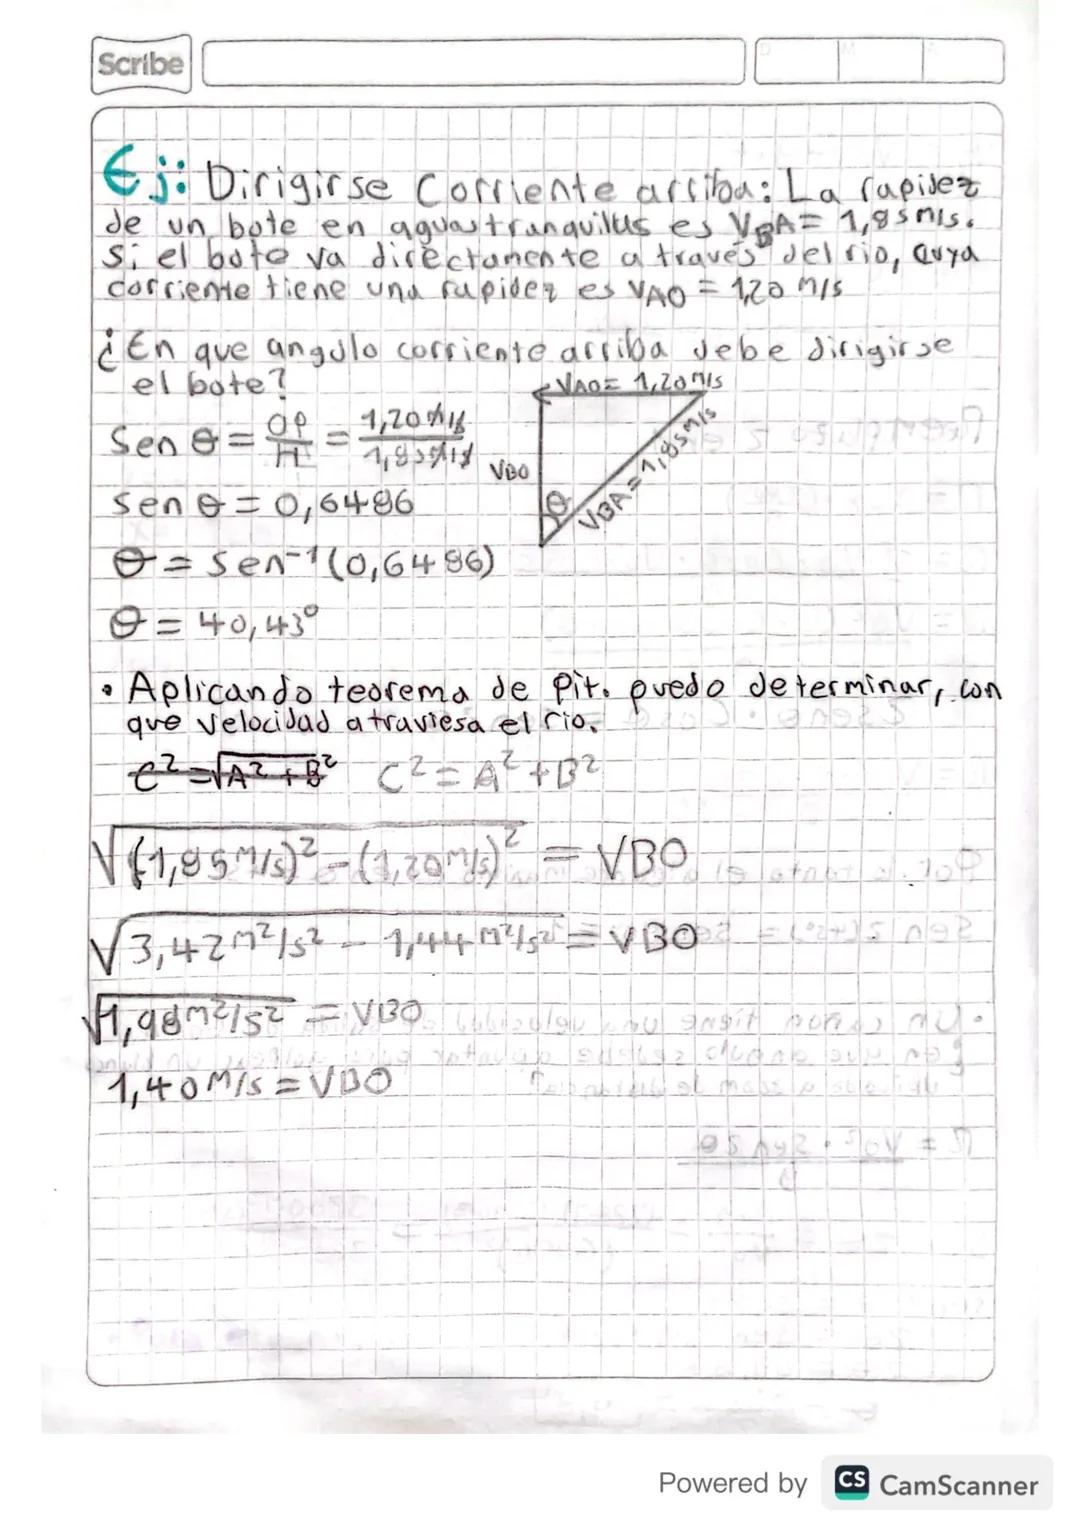 Scribe
D M A
Ej: Dirigirse Corriente arriba: La rapidez
de un bote en aguas tranquilas es VBA= 1,85m/s.
Si el bote va directamente a través del rio, cuya
corriente tiene una rapidez es VAO = 1,20 m/s
¿En que angulo corriente arriba debe dirigirse
el bote?
VAO= 1,20m/s
Sen θ = op/H = 1,20 m/s/1,85m/s
VBO
θ
VBA = 1,85m/s
sen θ = 0,6486
θ = sen⁻¹(0,6486)
θ = 40,43°
• Aplicando teorema de Pit. puedo determinar, con
que velocidad atraviesa el rio.
C² =√A² + B² C² = A² + B²
√(1,85m/s)² - (1,20m/s)² = VBO
√3,42m²/s² - 1,44m²/s² = VBO
√1,98m²/s² = VBO
1,40 m/s = VBO
Powered by CS CamScanner